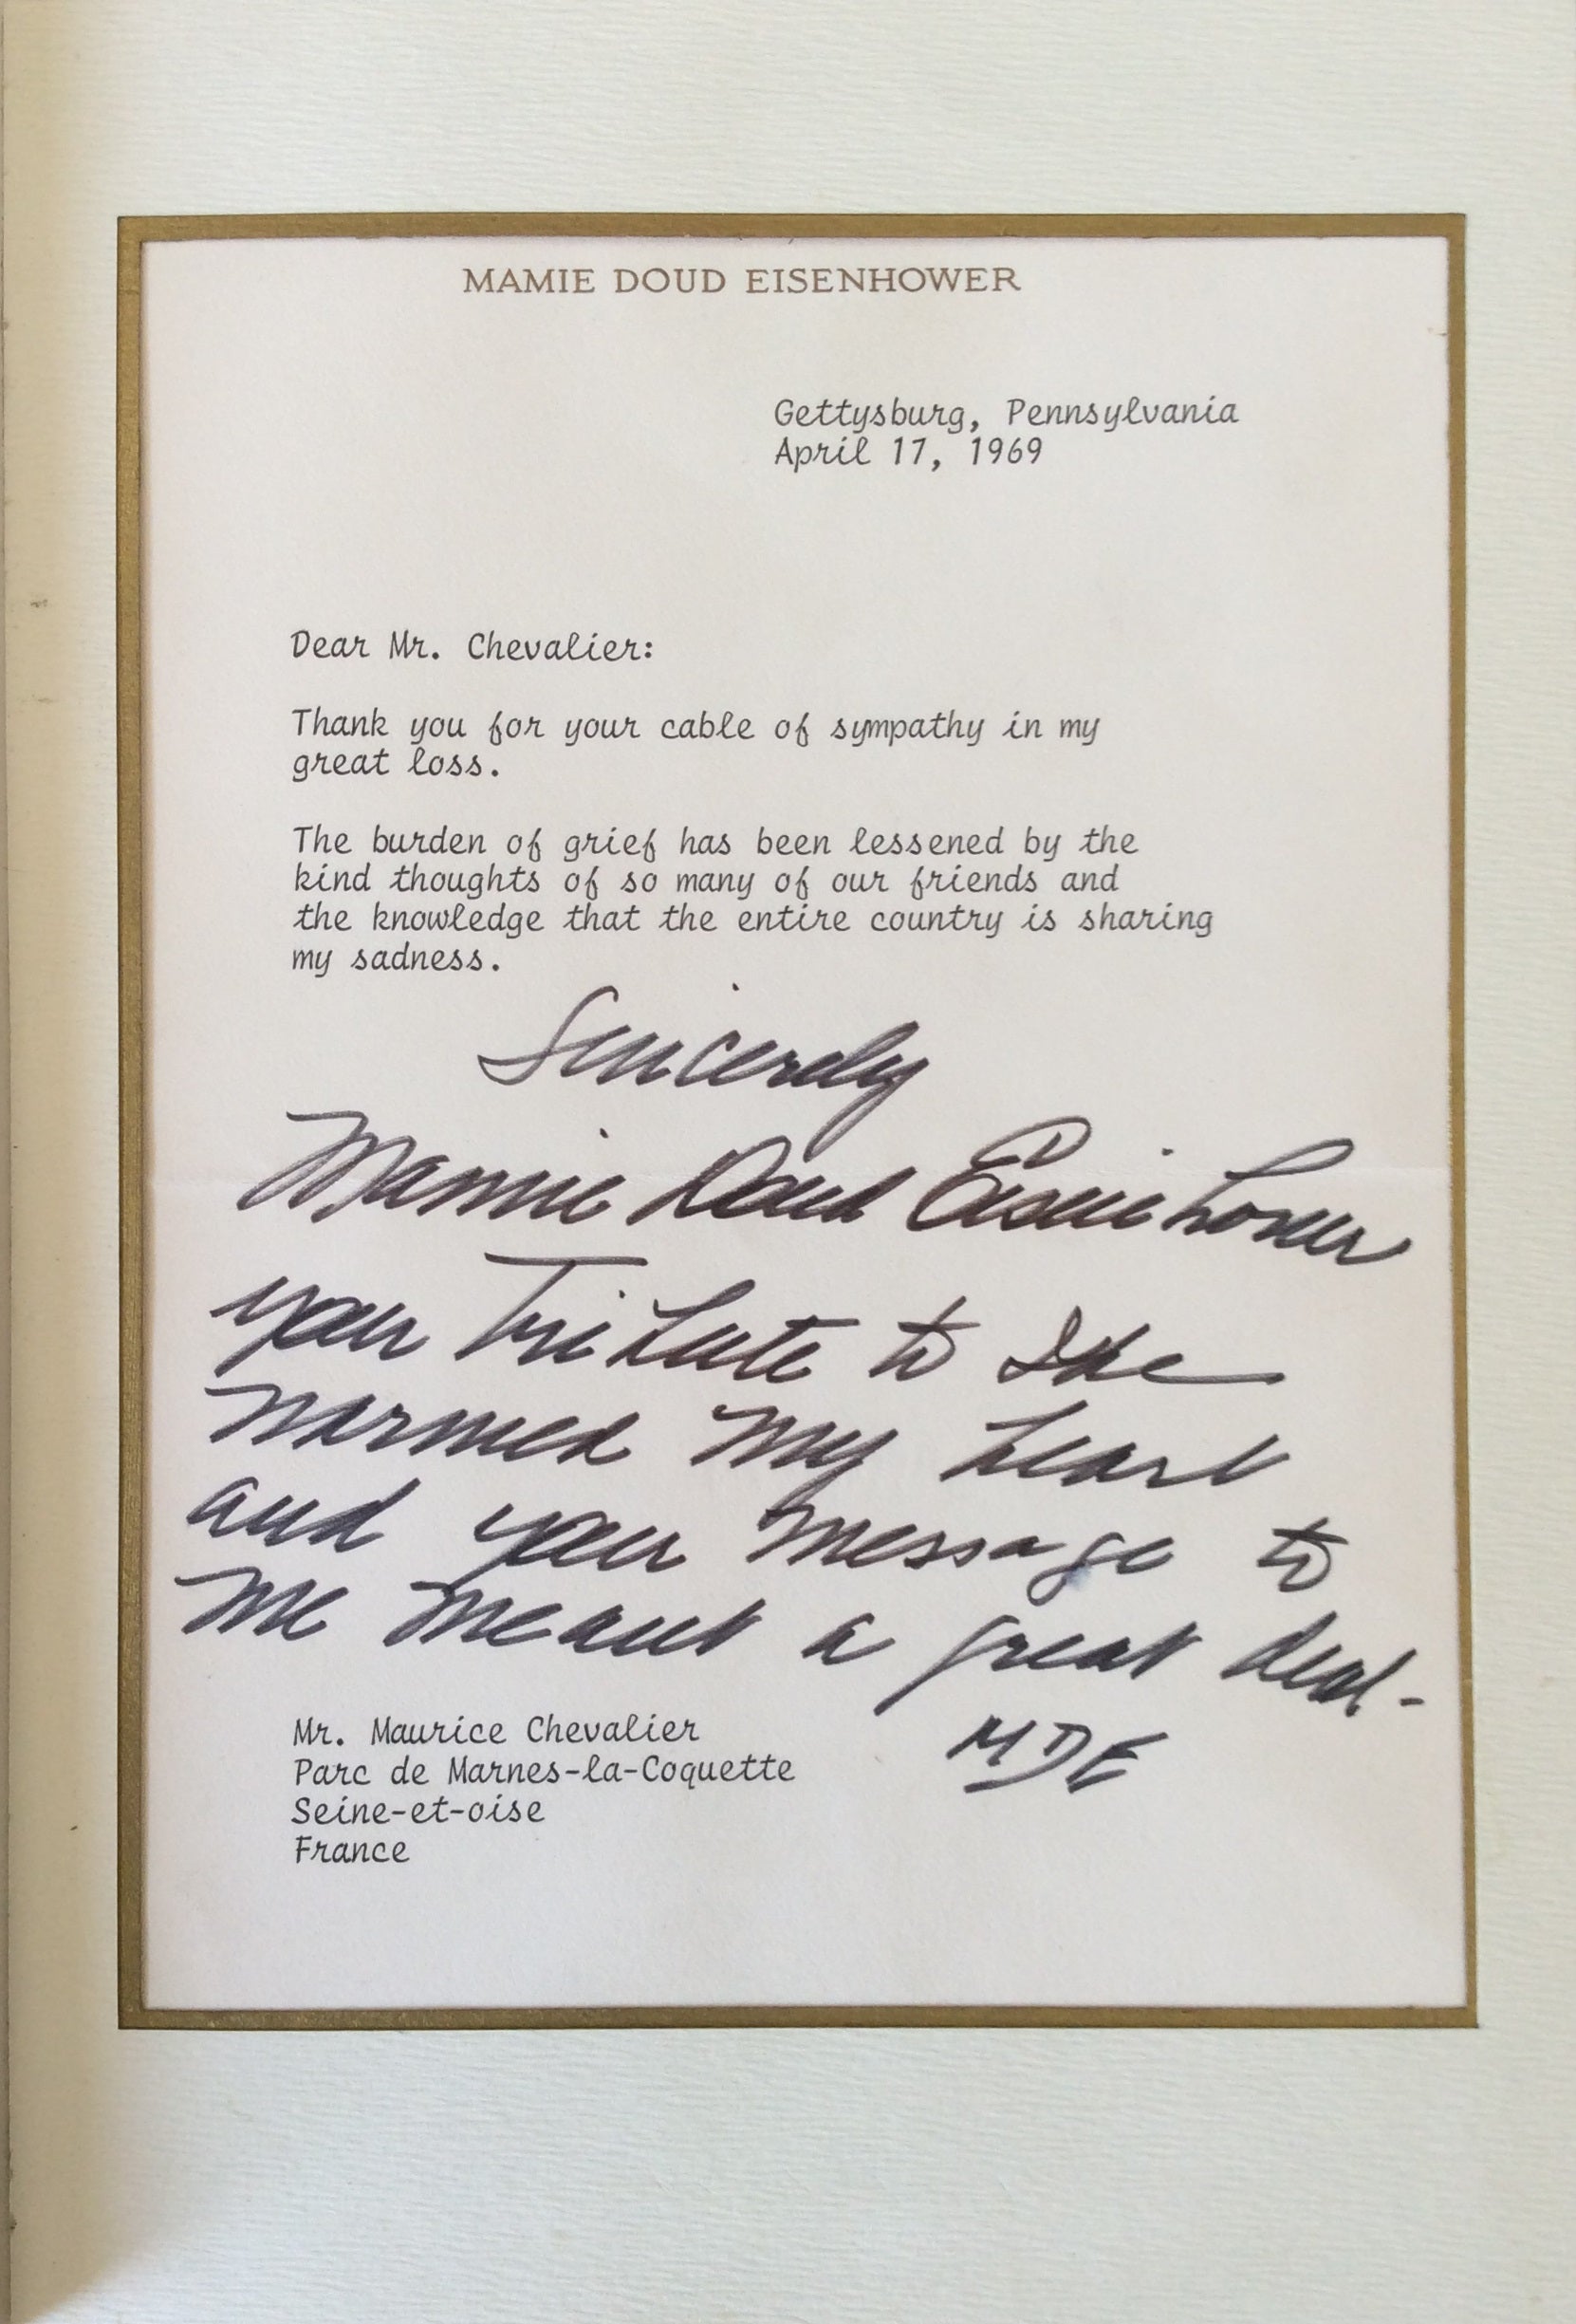 MAMIE DOUD EISENHOWER
Gettysburg, Pennsylvania
April 17, 1969
Dear Mr. Chevalier:
Thank you for your cable of sympathy in my
great loss.
The burden of grief has been lessened by the
kind thoughts of so many of our friends and
the knowledge that the entire country is sharing
my sadness.
Sincerely
Mamie Doud Eisenhower
your Tribute to Ike
warmed my heart
and your message to
me meant a great deal-
MDE
Mr. Maurice Chevalier
Parc de Marnes-la-Coquette
Seine-et-oise
France